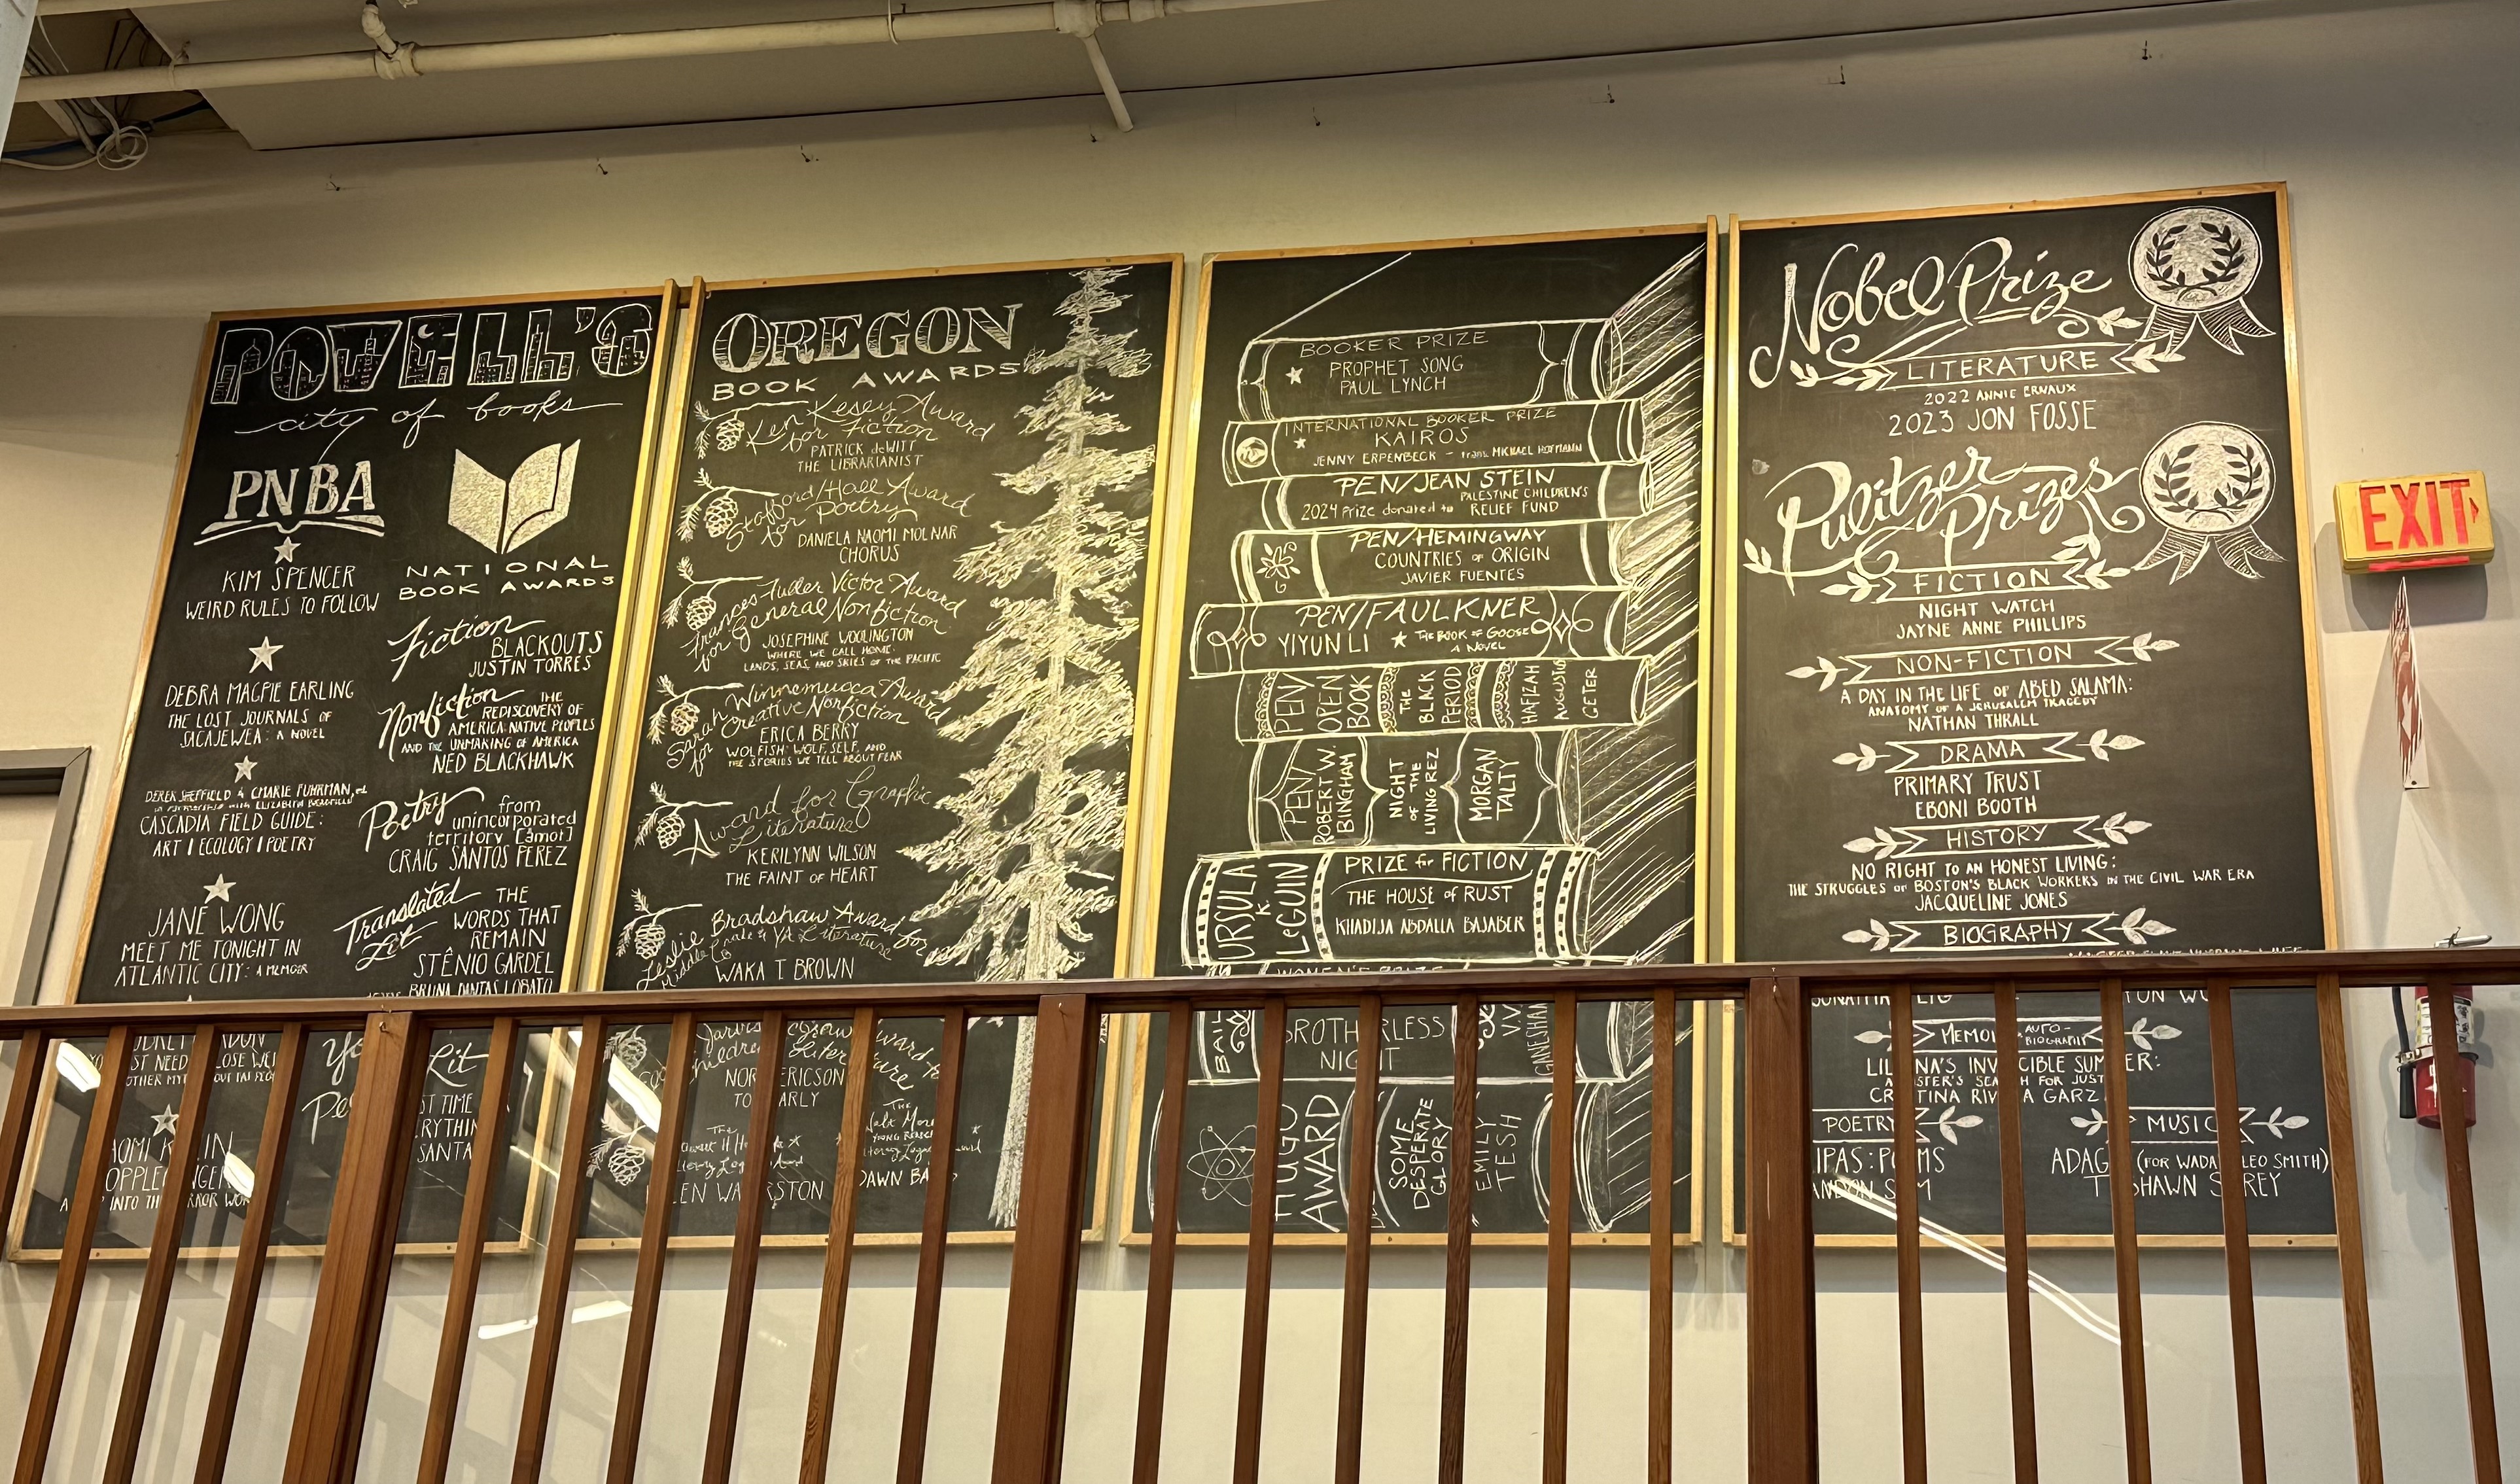 POWELL'S
city of books
PNBA
KIM SPENCER
WEIRD RULES TO FOLLOW
DEBRA MAGPIE EARLING
THE LOST JOURNALS OF
SACAJEWEA: A NOVEL
DEREK SHEFFIELD & CMARIE FUHRMAN,
CASCADIA FIELD GUIDE:
ART | ECOLOGY | POETRY
JANE WONG
MEET ME TONIGHT IN
ATLANTIC CITY: A MEMOIR
NATIONAL
BOOK AWARDS
Fiction
BLACKOUTS
JUSTIN TORRES
Nonfiction THE
REDISCOVERY OF
AMERICA: NATIVE PEOPLES
AND THE UNMAKING OF AMERICA
NED BLACKHAWK
Poetry from
unincorporated
territory [åmot]
CRAIG SANTOS PEREZ
Translated THE
Lit WORDS THAT
REMAIN
STÊNIO GARDEL
BRUNA DANTAS LOBATO
Lit
OREGON
BOOK AWARDS
Ken Kesey Award
for Fiction
PATRICK deWITT
THE LIBRARIANIST
Stafford/Hall Award
for Poetry
DANIELA NAOMI MOLNAR
CHORUS
Frances Fuller Victor Award
for General Nonfiction
JOSEPHINE WOOLINGTON
WHERE WE CALL HOME:
LANDS, SEAS, AND SKIES OF THE PACIFIC
Sarah Winnemucca Award
for Creative Nonfiction
ERICA BERRY
WOLFISH: WOLF, SELF, AND
THE STORIES WE TELL ABOUT FEAR
Award for Graphic
Literature
KERILYNN WILSON
THE FAINT OF HEART
Leslie Bradshaw Award for
Middle Grade & YA Literature
WAKA T. BROWN
ERICSON
BOOKER PRIZE
PROPHET SONG
PAUL LYNCH
INTERNATIONAL BOOKER PRIZE
KAIROS
JENNY ERPENBECK - trans. MICHAEL HOFMANN
PEN/JEAN STEIN
2024 prize donated to PALESTINE CHILDREN'S
RELIEF FUND
PEN/HEMINGWAY
COUNTRIES OF ORIGIN
JAVIER FUENTES
PEN/FAULKNER
YIYUN LI THE BOOK OF GOOSE
A NOVEL
PEN/
OPEN
BOOK
THE
BLACK
PERIOD
HAFIZAH
AUGUSTUS
GETER
PEN/
ROBERT W.
BINGHAM
NIGHT
OF THE
LIVING REZ
MORGAN
TALTY
URSULA
K.
LeGUIN
PRIZE for FICTION
THE HOUSE OF RUST
KHADIJA ABDALLA BAJABER
WOMEN'S PRIZE
BROTHERLESS
NIGHT
HUGO
AWARD
SOME
DESPERATE
GLORY
EMILY
TESH
Nobel Prize
LITERATURE
2022 ANNIE ERNAUX
2023 JON FOSSE
Pulitzer
Prizes
FICTION
NIGHT WATCH
JAYNE ANNE PHILLIPS
NON-FICTION
A DAY IN THE LIFE OF ABED SALAMA:
ANATOMY OF A JERUSALEM TRAGEDY
NATHAN THRALL
DRAMA
PRIMARY TRUST
EBONI BOOTH
HISTORY
NO RIGHT TO AN HONEST LIVING:
THE STRUGGLES OF BOSTON'S BLACK WORKERS IN THE CIVIL WAR ERA
JACQUELINE JONES
BIOGRAPHY
POETRY
MUSIC
(FOR WADADA LEO SMITH)
EXIT